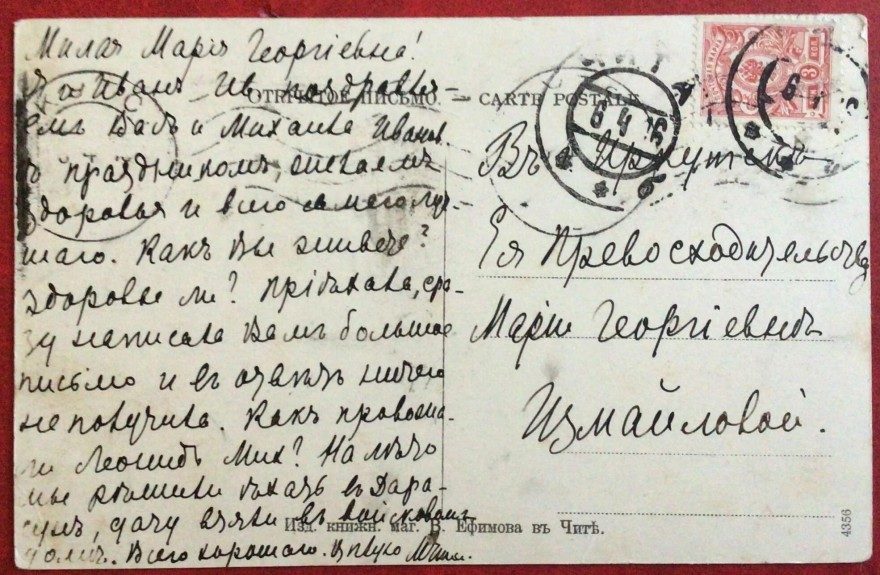 Милая Марія Георгіевна!
Я и Иванъ Ив. поздравля-
емъ Васъ и Михаила Иванов.
съ праздникомъ, желаемъ
здоровья и всего самаго луч-
шаго. Какъ Вы живете?
здоровы ли? Пріѣхала, сра-
зу написала Вамъ большое
письмо и въ отвѣтъ ничего
не получила. Какъ провожа-
ли Леонидъ Мих? На лѣто
мы рѣшили ѣхать въ Дара-
сунъ, дачу взяли въ войсковомъ
домѣ. Всего хорошаго.
ОТКРЫТОЕ ПИСЬМО. — CARTE POSTALE
6 4 16
3 КОП.
Въ Иркутскъ
Ея Превосходительству
Маріи Георгіевнѣ
Измайловой.
Изд. книжн. маг. В. Ефимова въ Читѣ.
4356